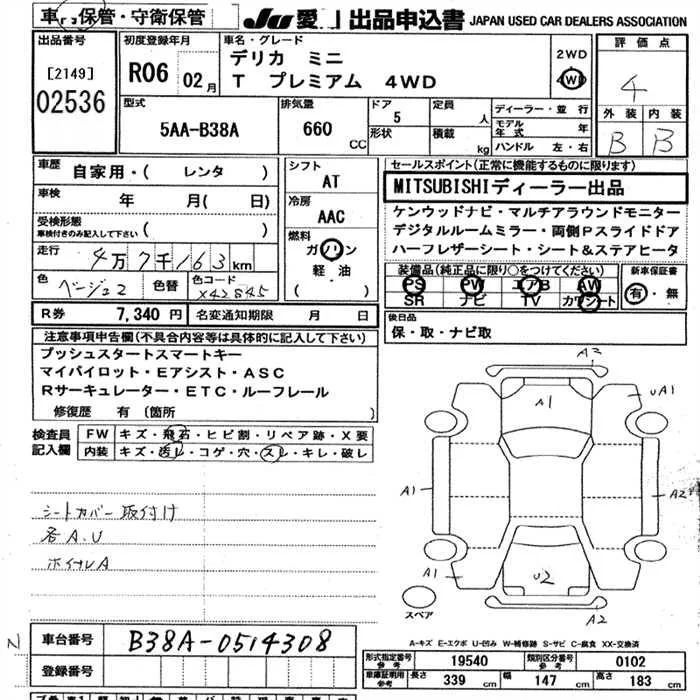 車 保管・守衛保管
JU 愛 出品申込書 JAPAN USED CAR DEALERS ASSOCIATION
出品番号
[2149]
02536
初度登録年月
R06 02月
車名・グレード
デリカ ミニ
T プレミアム 4WD
2WD
4WD
評価点
4
外装 内装
B B
型式
5AA-B38A
排気量
660 CC
ドア
5
形状
定員 人
積載 kg
ディーラー・並行
モデル年式 年
ハンドル 左・右
車歴
自家用・( レンタ )
車検
年 月( 日)
受検形態
車検付きのみ記入して下さい ( )
走行
4万7千163km
色
ベージュ2
色替
色コード
X42 845
シフト
AT
冷房
AAC
燃料
ガソリン
軽・油
( )
セールスポイント(正常に機能するものに限ります)
MITSUBISHIディーラー出品
ケンウッドナビ・マルチアラウンドモニター
デジタルルームミラー・両側Pスライドドア
ハーフレザーシート・シート&ステアヒータ
装備品(純正品に限り○をつけてください)
PS PW エアB AW
SR ナビ TV カワシート
新車保証書
有・無
R券 7,340 円 名変通知期限 月 日
後日品
保・取・ナビ取
注意事項申告欄(不具合内容等は具体的に記入して下さい)
プッシュスタートスマートキー
マイパイロット・Eアシスト・ASC
Rサーキュレーター・ETC・ルーフレール
修復歴 有 〔箇所 〕
検査員記入欄
FW キズ・飛石・ヒビ割・リペア跡・X要
内装 キズ・汚レ・コゲ・穴・スレ・キレ・破レ
シートカバー取付け
各A.U
ホイルA
A2
A1
UA1
A1
A2
A1
U2
A1
A2
スペア
A-キズ E-エクボ U-凹み W-補修跡 S-サビ C-腐食 XX-交換済
N
車台番号 B38A-0514308
登録番号
形式指定番号 参考 19540 類別区分番号 参考 0102
車庫証明用参考 長さ 339 cm 幅 147 cm 高さ 183 cm